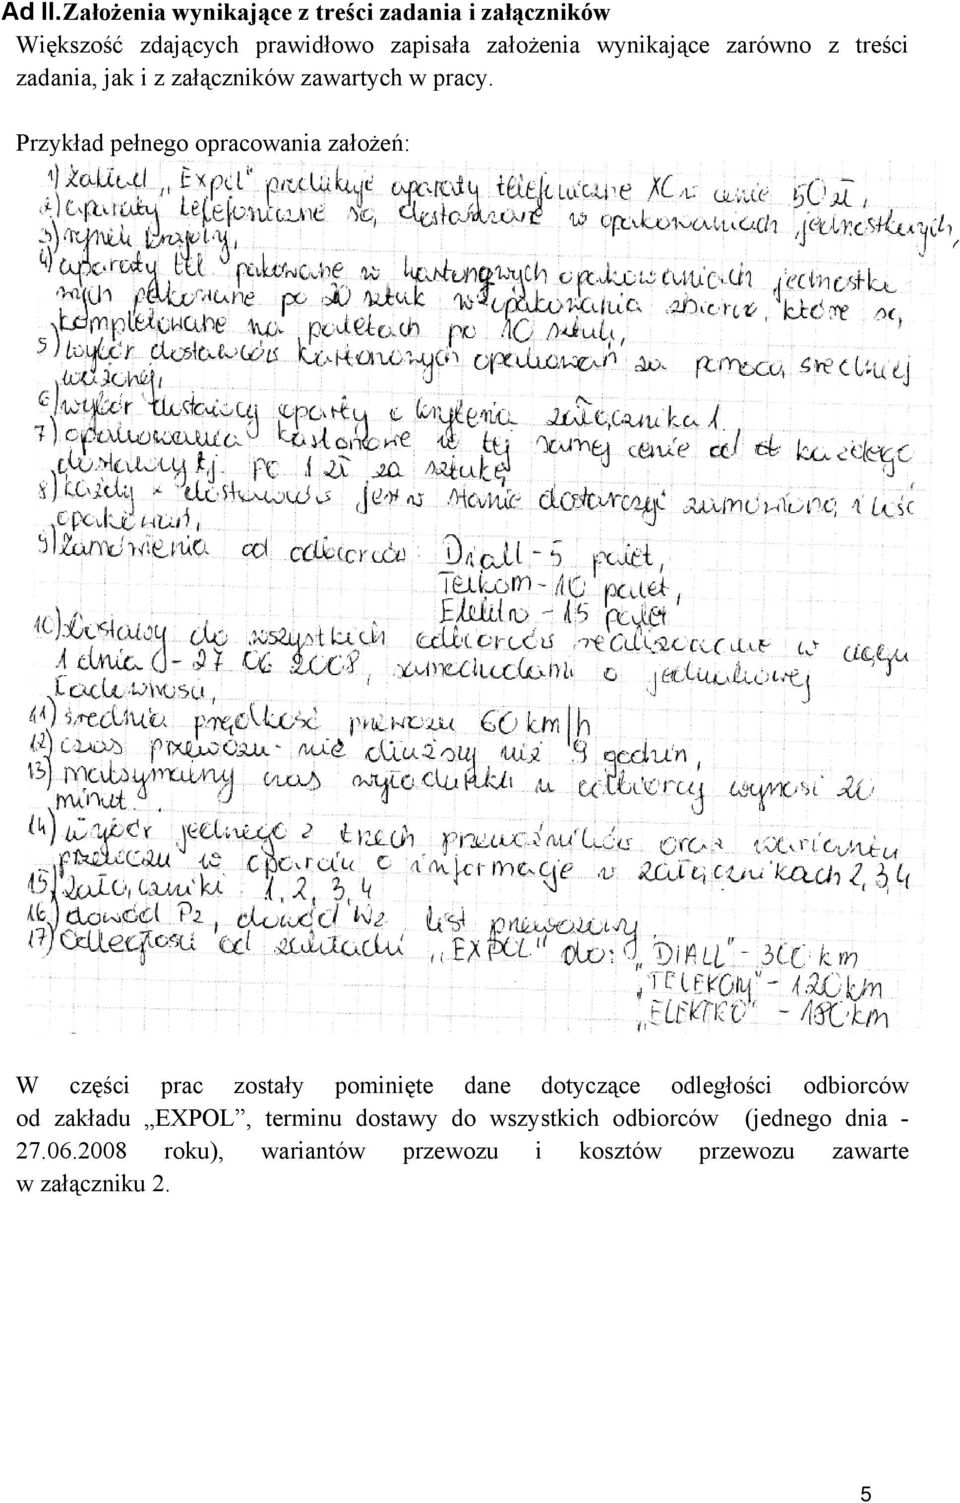 Ad II. Założenia wynikające z treści zadania i załączników
Większość zdających prawidłowo zapisała założenia wynikające zarówno z treści
zadania, jak i z załączników zawartych w pracy.
Przykład pełnego opracowania założeń:
1) Zakład „Expol" produkuje aparaty telefoniczne XC w cenie 50 zł,
2) aparaty telefoniczne są dostarczane w opakowaniach jednostkowych,
3) rynek krajowy,
4) aparaty tel pakowane w kartonowych opakowaniach jednostko
wych pakowane po 20 sztuk w opakowania zbiorcze, które są
kompletowane na paletach po 10 sztuk,
5) wybór dostawców kartonowych opakowań za pomocą średniej
ważonej,
6) wybór dostawcy oparty o kryteria załącznika 1.,
7) opakowania kartonowe w tej samej cenie od każdego
dostawcy tj. po 1 zł za sztukę
8) każdy z dostawców jest w stanie dostarczyć zamówioną ilość
opakowań,
9) Zamówienia od odbiorców: Diall - 5 palet,
Telkom - 10 palet,
Elektro - 15 palet
10) Dostawy do wszystkich odbiorców realizowane w ciągu
1 dnia - 27 06 2008, samochodami o jednakowej
ładowności,
11) średnia prędkość przewozu 60 km/h
12) czas przewozu - nie dłuższy niż 9 godzin,
13) maksymalny czas wyładunku u odbiorcy wynosi 20
minut.
14) wybór jednego z trzech przewoźników oraz wariantu
przewozu w oparciu o informacje w załącznikach 2, 3, 4
15) Załączniki 1, 2, 3, 4
16) dowód Pz, dowód Wz list przewozowy
17) Odległości od zakładu „EXPOL" do: „DIALL" - 300 km
„TELEKOM" - 120 km
„ELEKTRO" - 180 km
W części prac zostały pominięte dane dotyczące odległości odbiorców
od zakładu „EXPOL”, terminu dostawy do wszystkich odbiorców (jednego dnia -
27.06.2008 roku), wariantów przewozu i kosztów przewozu zawarte
w załączniku 2.
5